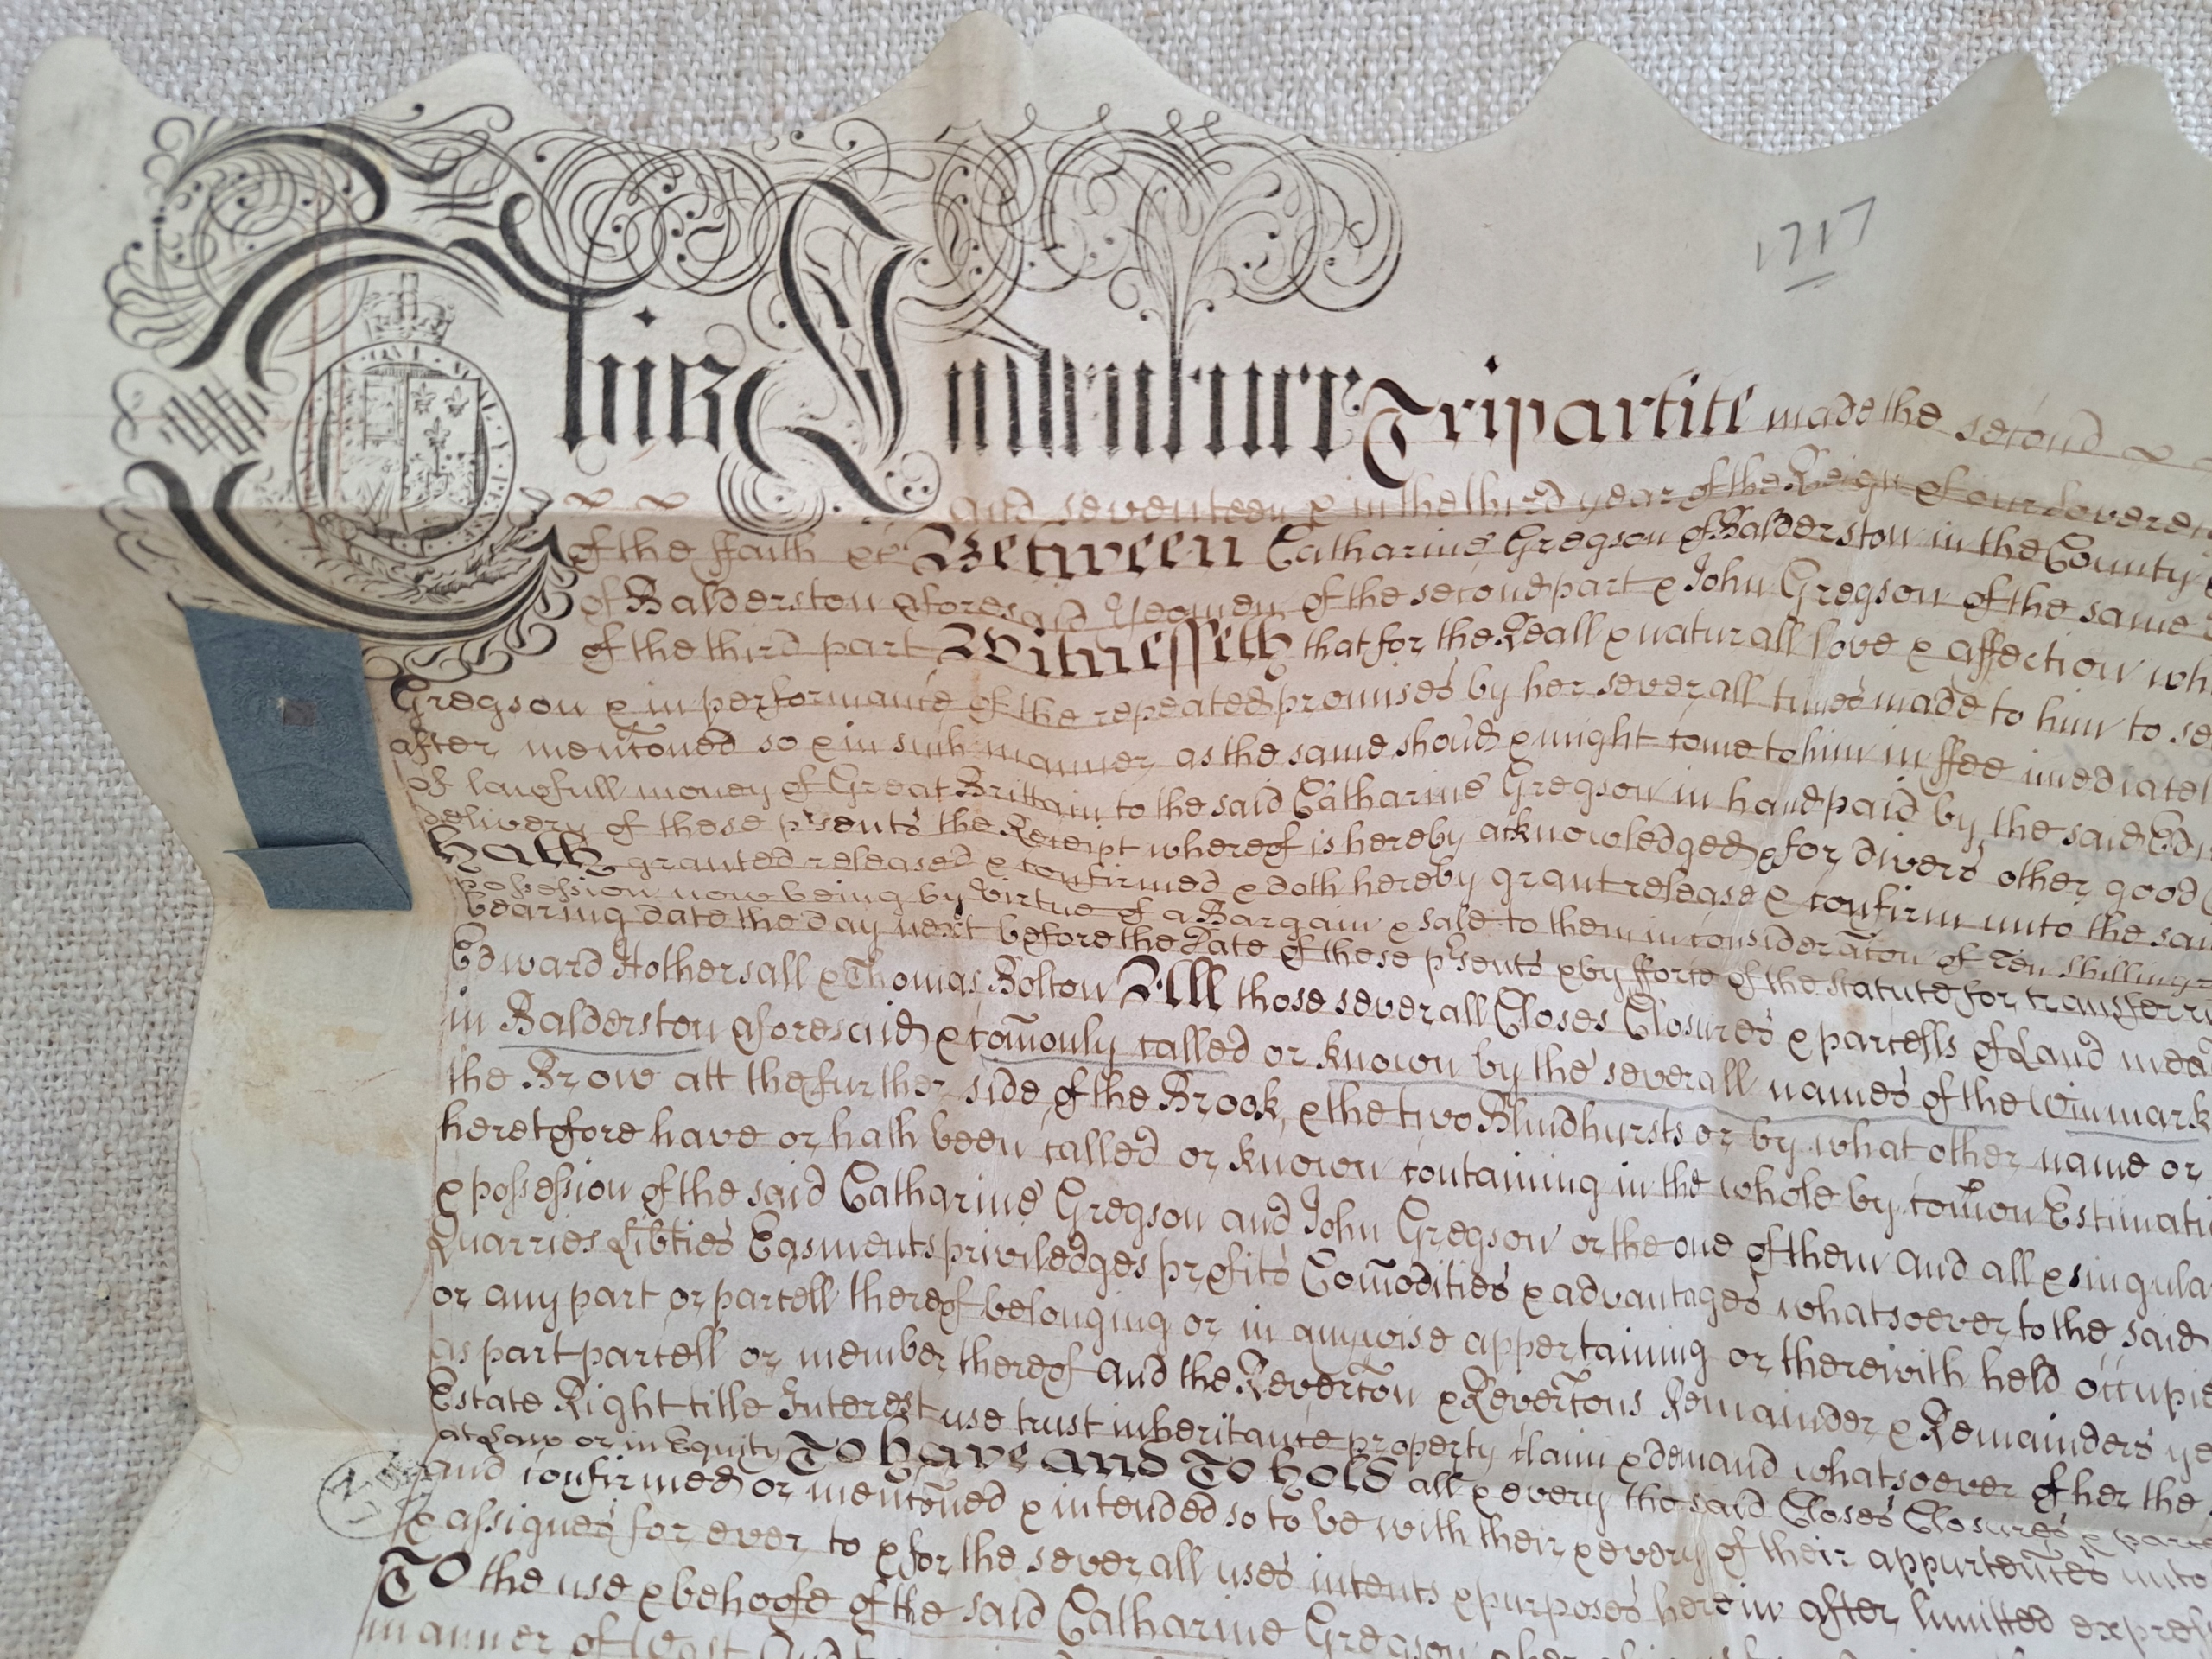 1717
This Indenture Tripartite made the second
and seventeen & in the third year of the Reign of our Soveren
of the ffaith &c Between Catharine Gregson of Balderston in the County
of Balderston aforesaid Yeomen of the second part & John Gregson of the same
of the third part Witnesseth that for the Reall & naturall love & affection wh
Gregson & in performance of the repeated promises by her severall times made to him to se
after menc̃oned so & in such manner as the same shoud & might come to him in ffee imediatel
of lawfull money of Great Brittain to the said Catharine Gregson in hand paid by the said Ed
delivery of these p'sents the Receipt whereof is hereby acknowledged & for divers other good
Hath granted released & confirmed & doth hereby grant release & confirm unto the said
possession now being by virtue of a Bargain & sale to them in considerac̃on of Ten shillings
bearing date the day next before the Date of these p'sents & by fforce of the statute for transferri
Edward Hothersall & Thomas Bolton All those severall Closes Closures & parcells of Land mea
in Balderston aforesaid & com̃only called or known by the severall names of the Winmark
the Brow att the further side of the Brook & the two Blindhursts or by what other name or
heretofore have or hath been called or known containing in the whole by com̃on Estimati
& possession of the said Catharine Gregson and John Gregson or the one of them and all & singula
Quarries Lib̃ties Easments priviledges profits Com̃odities & advantages whatsoever to the said
or any part or parcell thereof belonging or in anywise appertaining or therewith held occupie
as part parcell or member thereof and the Reverc̃on & Reverc̃ons Remainder & Remainders ye
Estate Right title Interest use trust inheritance property claim & demand whatsoever of her the
at Law or in Equity To have and To hold all & every the said Closes Closures & parce
and confirmed or menc̃oned & intended so to be with their & every of their appurten̄ces unto
& assignes for ever to & for the severall uses intents & purposes herein after limitted expres
To the use & behoofe of the said Catharine Gregson
manner of Wast And